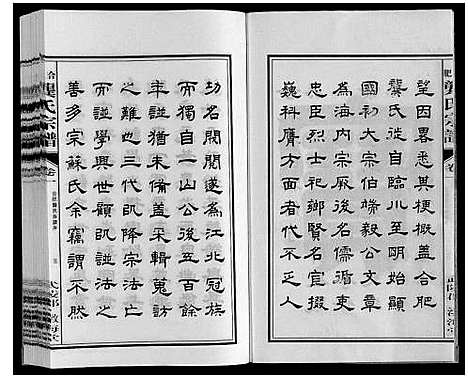 肥龔氏宗譜
望因畧悉其梗概蓋合肥
龔氏自臨川至明始顯
國初大宗伯端毅公文章
為海內宗厥後名儒循吏
忠臣烈士祀鄉賢名宦
巍科膺方面者代不乏人
功名閥閱遂為江北冠族
而獨自一山公後五百餘
年譜猶未脩蓋采輯蒐訪
之難也三代既降宗法
而譜學興譜法
善多宗蘇氏余竊謂不然
合龔氏宗譜
卷一